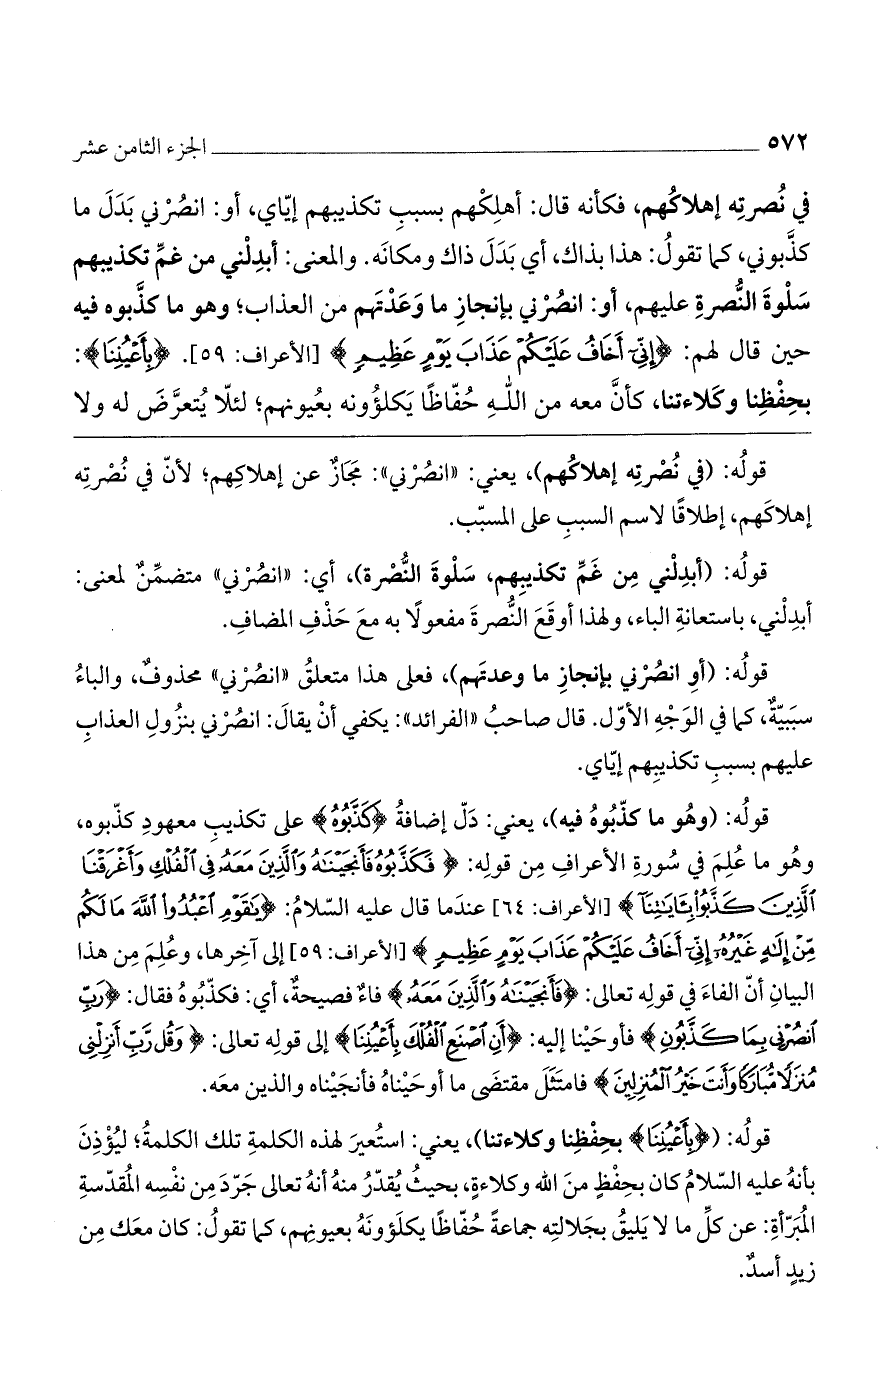 ٥٧٢ الجزء الثامن عشر
في نُصرتِه إهلاكُهم، فكأنه قال: أهلِكْهم بسببِ تكذيبهم إيّاي، أو: انصُرْني بَدَلَ ما
كذَّبوني، كما تقولُ: هذا بذاك، أي بَدَلَ ذاك ومكانَه. والمعنى: أبدِلْني من غمِّ تكذيبهم
سَلْوةَ النُّصرةِ عليهم، أو: انصُرْني بإنجازِ ما وَعَدْتَهم من العذاب؛ وهو ما كذَّبوه فيه
حين قال لهم: ﴿إِنِّىٓ أَخَافُ عَلَيْكُمْ عَذَابَ يَوْمٍ عَظِيمٍ﴾ [الأعراف: ٥٩]. ﴿بِأَعْيُنِنَا﴾:
بحِفْظِنا وكَلاءتنا، كأنَّ معه من اللهِ حُفّاظًا يَكلؤُونه بعُيونهم؛ لئلّا يُتعرَّضَ له ولا
قولُه: (في نُصْرتِه إهلاكُهم)، يعني: «انصُرْني»: مَجَازٌ عن إهلاكِهم؛ لأنّ في نُصْرتِه
إهلاكَهم، إطلاقًا لاسم السببِ على المسبّب.
قولُه: (أبدِلْني مِن غَمِّ تكذيبِهم، سَلْوةَ النُّصْرة)، أي: «انصُرْني» متضمِّنٌ لمعنى:
أبدِلْني، باستعانةِ الباء، ولهذا أوقَعَ النُّصرةَ مفعولًا به معَ حَذْفِ المضاف.
قولُه: (أوِ انصُرْني بإنجازِ ما وعدتَهم)، فعلى هذا متعلقُ «انصُرْني» محذوفٌ، والباءُ
سبَبيّةٌ، كما في الوَجْهِ الأوّل. قال صاحبُ «الفرائد»: يكفي أنْ يقالَ: انصُرْني بنزُولِ العذابِ
عليهم بسببِ تكذيبِهم إيّاي.
قولُه: (وهُو ما كذّبُوهُ فيه)، يعني: دَلّ إضافةُ ﴿كَذَّبُوهُ﴾ على تكذيبِ معهودِ كذّبوه،
وهُو ما عُلِمَ في سُورةِ الأعرافِ مِن قولِه: ﴿فَكَذَّبُوهُ فَأَنجَيْنَـٰهُ وَٱلَّذِينَ مَعَهُۥ فِى ٱلْفُلْكِ وَأَغْرَقْنَا
ٱلَّذِينَ كَذَّبُوا۟ بِـَٔايَـٰتِنَآ﴾ [الأعراف: ٦٤] عندَما قال عليه السّلامُ: ﴿يَـٰقَوْمِ ٱعْبُدُوا۟ ٱللَّهَ مَا لَكُم
مِّنْ إِلَـٰهٍ غَيْرُهُۥٓ إِنِّىٓ أَخَافُ عَلَيْكُمْ عَذَابَ يَوْمٍ عَظِيمٍ﴾ [الأعراف: ٥٩] إلى آخِرها، وعُلِمَ مِن هذا
البيانِ أنّ الفاءَ في قولِه تعالى: ﴿فَأَنجَيْنَـٰهُ وَٱلَّذِينَ مَعَهُۥ﴾ فاءٌ فصيحةٌ، أي: فكذّبُوهُ فقال: ﴿رَبِّ
ٱنصُرْنِى بِمَا كَذَّبُونِ﴾ فأوحَيْنا إليه: ﴿أَنِ ٱصْنَعِ ٱلْفُلْكَ بِأَعْيُنِنَا﴾ إلى قولِه تعالى: ﴿وَقُل رَّبِّ أَنزِلْنِى
مُنزَلًا مُّبَارَكًا وَأَنتَ خَيْرُ ٱلْمُنزِلِينَ﴾ فامتَثَلَ مقتضَى ما أوحَيْناهُ فأنجَيْناه والذين معَه.
قولُه: (﴿بِأَعْيُنِنَا﴾ بحِفْظِنا وكلاءتنا)، يعني: استُعيرَ لهذه الكلمةِ تلك الكلمةُ؛ ليُؤْذِنَ
بأنهُ عليه السّلامُ كان بحِفْظٍ منَ الله وكلاءةٍ، بحيثُ يُقدّرُ منهُ أنهُ تعالى جَرّدَ مِن نفْسِه المُقدّسةِ
المُبَرّأةِ: عن كلِّ ما لا يَليقُ بجَلالتِه جماعةً حُفّاظًا يكلَؤونَهُ بعيونِهم، كما تقولُ: كان معَك مِن
زيدٍ أسدٌ.